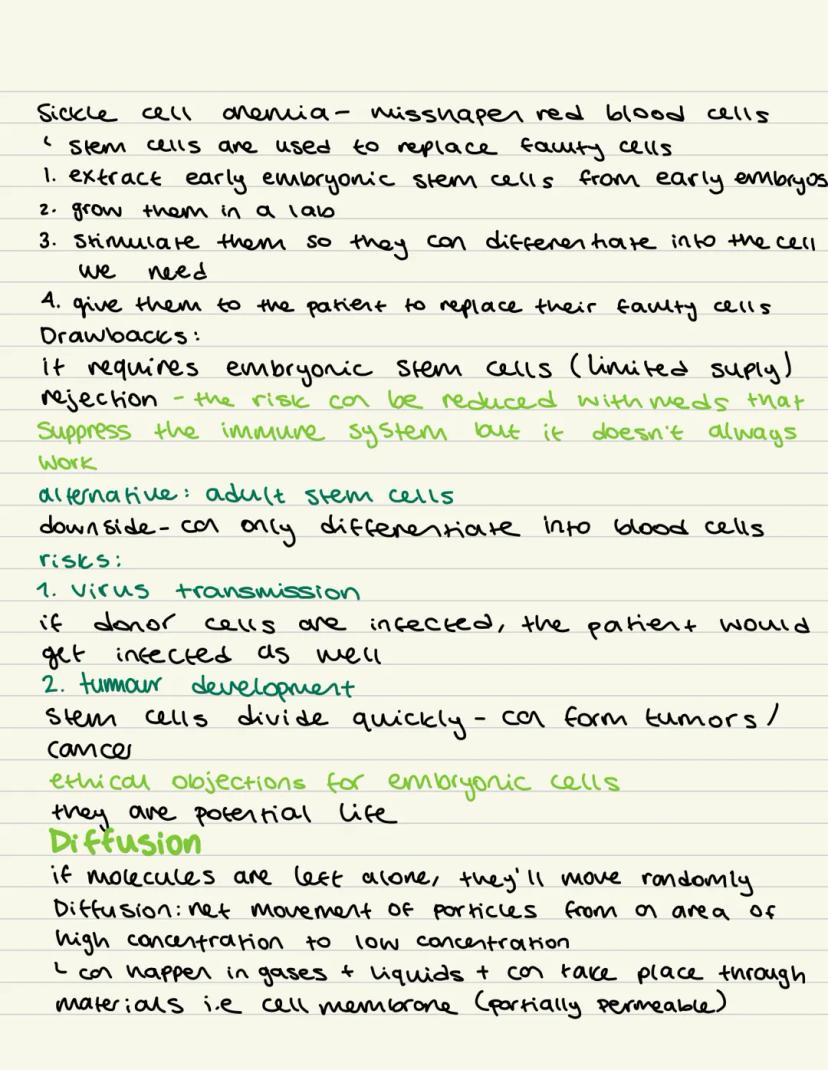 Sickle cell anemia - misshapen red blood cells
└ stem cells are used to replace faulty cells
1. extract early embryonic stem cells from early embryos
2. grow them in a lab
3. stimulate them so they can differentiate into the cell
we need
4. give them to the patient to replace their faulty cells
Drawbacks:
it requires embryonic stem cells (limited suply)
rejection - the risk can be reduced with meds that
suppress the immune system but it doesn't always
work
alternative: adult stem cells
downside - can only differentiate into blood cells
risks:
1. virus transmission
if donor cells are infected, the patient would
get infected as well
2. tumour development
stem cells divide quickly - can form tumors/
cancer
ethical objections for embryonic cells
they are potential life
Diffusion
if molecules are left alone, they'll move randomly
Diffusion: net movement of particles from an area of
high concentration to low concentration
└ can happen in gases + liquids + can take place through
materials i.e cell membrane (partially permeable)